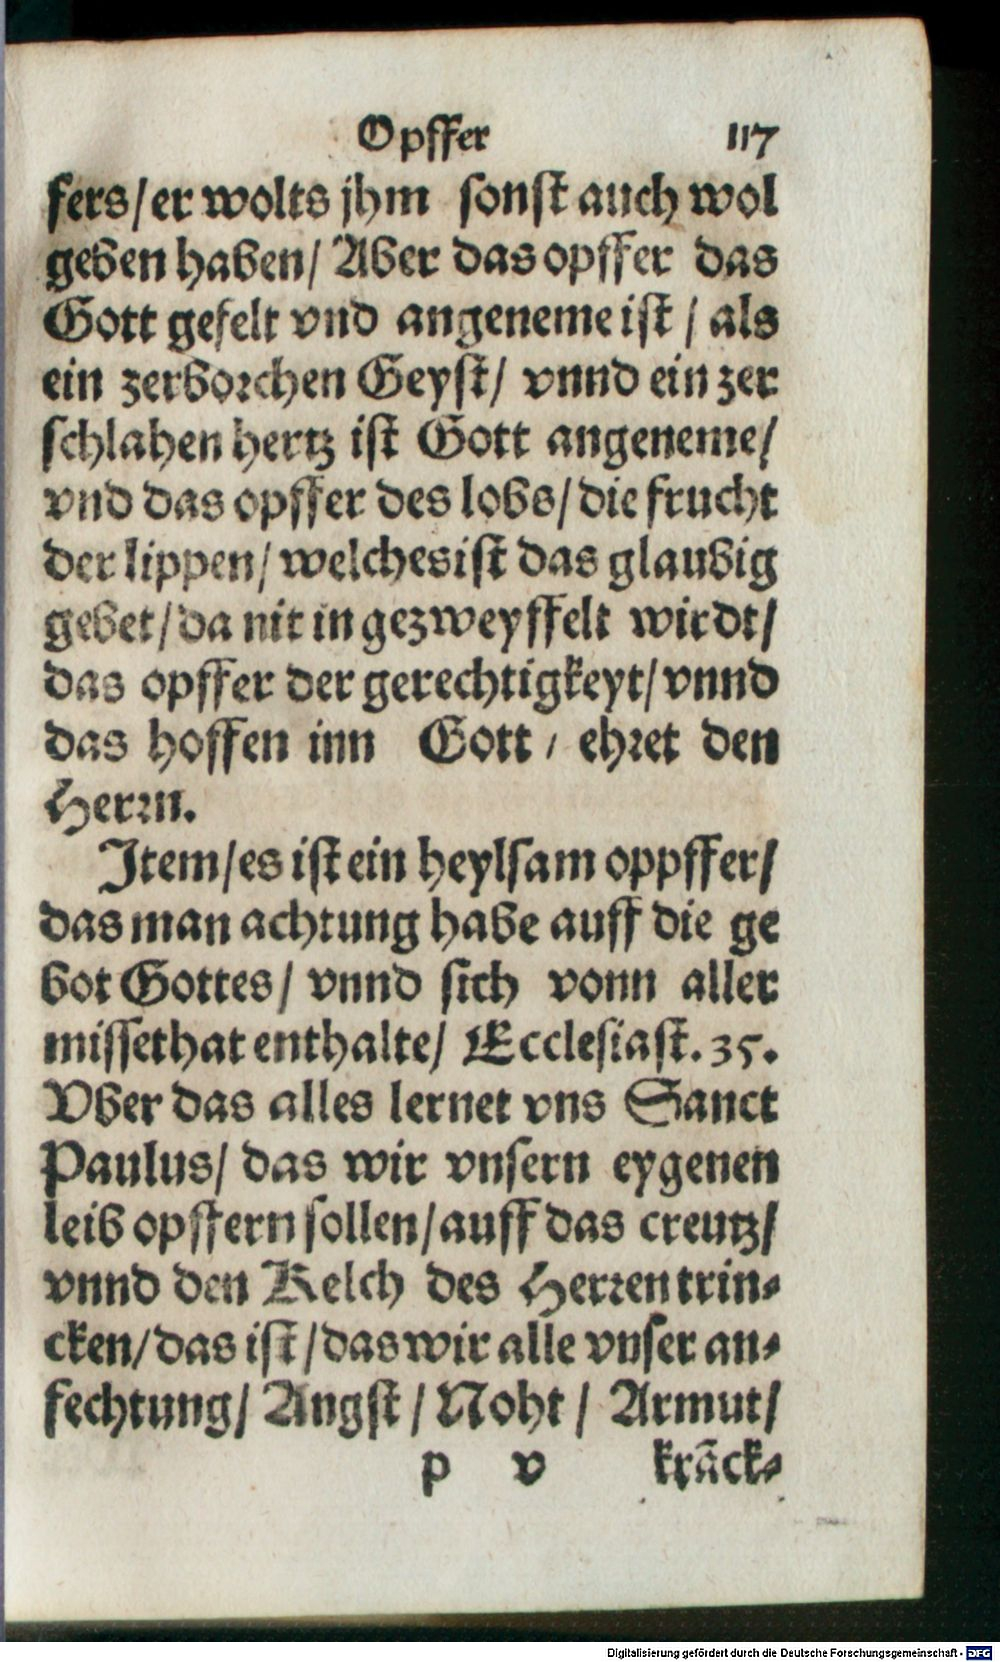 Opffer 117
fers/er wolts jhm sonst auch wol
geben haben/ Aber das opffer das
Gott gefelt vnd angeneme ist / als
ein zerborchen Geyst/ vnnd ein zer
schlahen hertz ist Gott angeneme/
vnd das opffer des lobs/ die frucht
der lippen/ welches ist das glaubig
gebet/ da nit in gezweyffelt wirdt/
das opffer der gerechtigkeyt/ vnnd
das hoffen inn Gott / ehret den
Herrn.
Item/es ist ein heylsam oppffer/
das man achtung habe auff die ge
bot Gottes/ vnnd sich vonn aller
missethat enthalte/ Ecclesiast. 35.
Vber das alles lernet vns Sanct
Paulus/ das wir vnsern eygenen
leib opffern sollen/auff das creutz/
vnnd den Kelch des Herren trin-
cken/das ist/das wir alle vnser an-
fechtung/ Angst / Noht / Armut/
p v krãck-
Digitalisierung gefördert durch die Deutsche Forschungsgemeinschaft - DFG